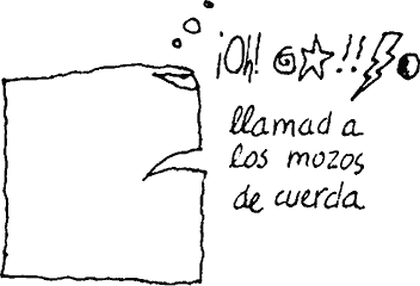 ¡Oh! @☆!!⚡◐
llamad a
los mozos
de cuerda